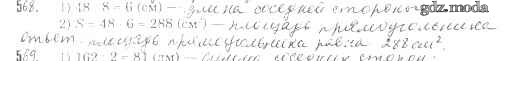 568. 1) 48 : 8 = 6 (см) — длина соседней стороны gdz.moda
2) S = 48 · 6 = 288 (см²) — площадь прямоугольника
ответ: площадь прямоугольника равна 288 см².
569. 1) 162 : 2 = 81 (дм) — сумма соседних сторон.